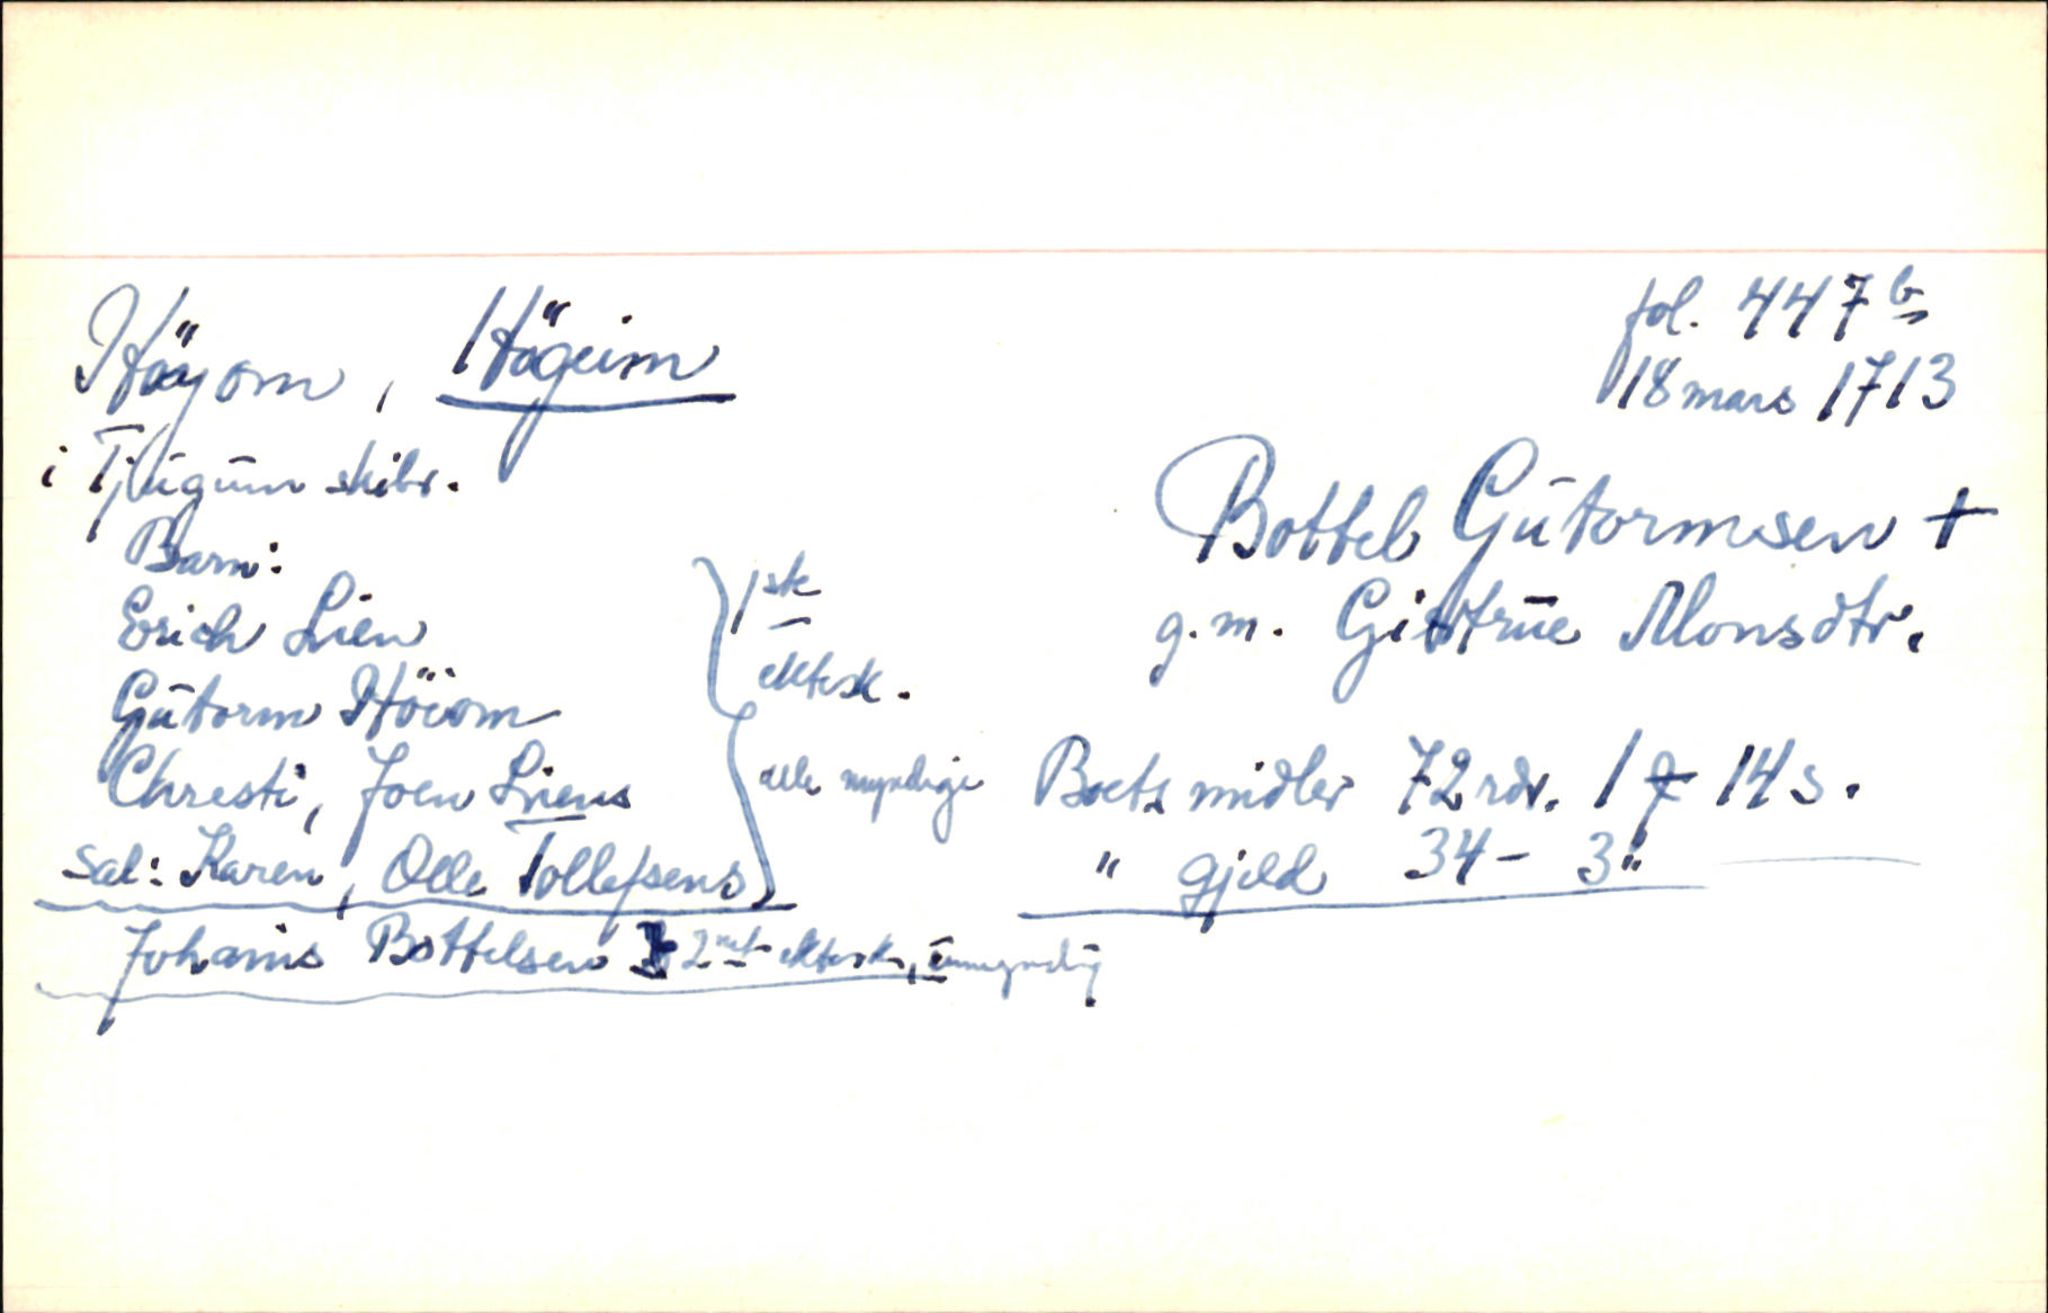 Höyom, Högeim
fol. 447b
18 mars 1713
i Tjugum skibr.
Bottel Gutormsen +
g.m. Gittrue Monsdtr.
Barn:
Erich Lien
1ste
ektesk.
Gutorm Höiom
Christi, Joen Liens
alle myndige
Boets midler 72 rdr. 1 14 s.
sal: Karen, Olle Tollefsens
" gjeld 34 - 3 "
Johanis Bottelsen 2net ektesk, umyndig